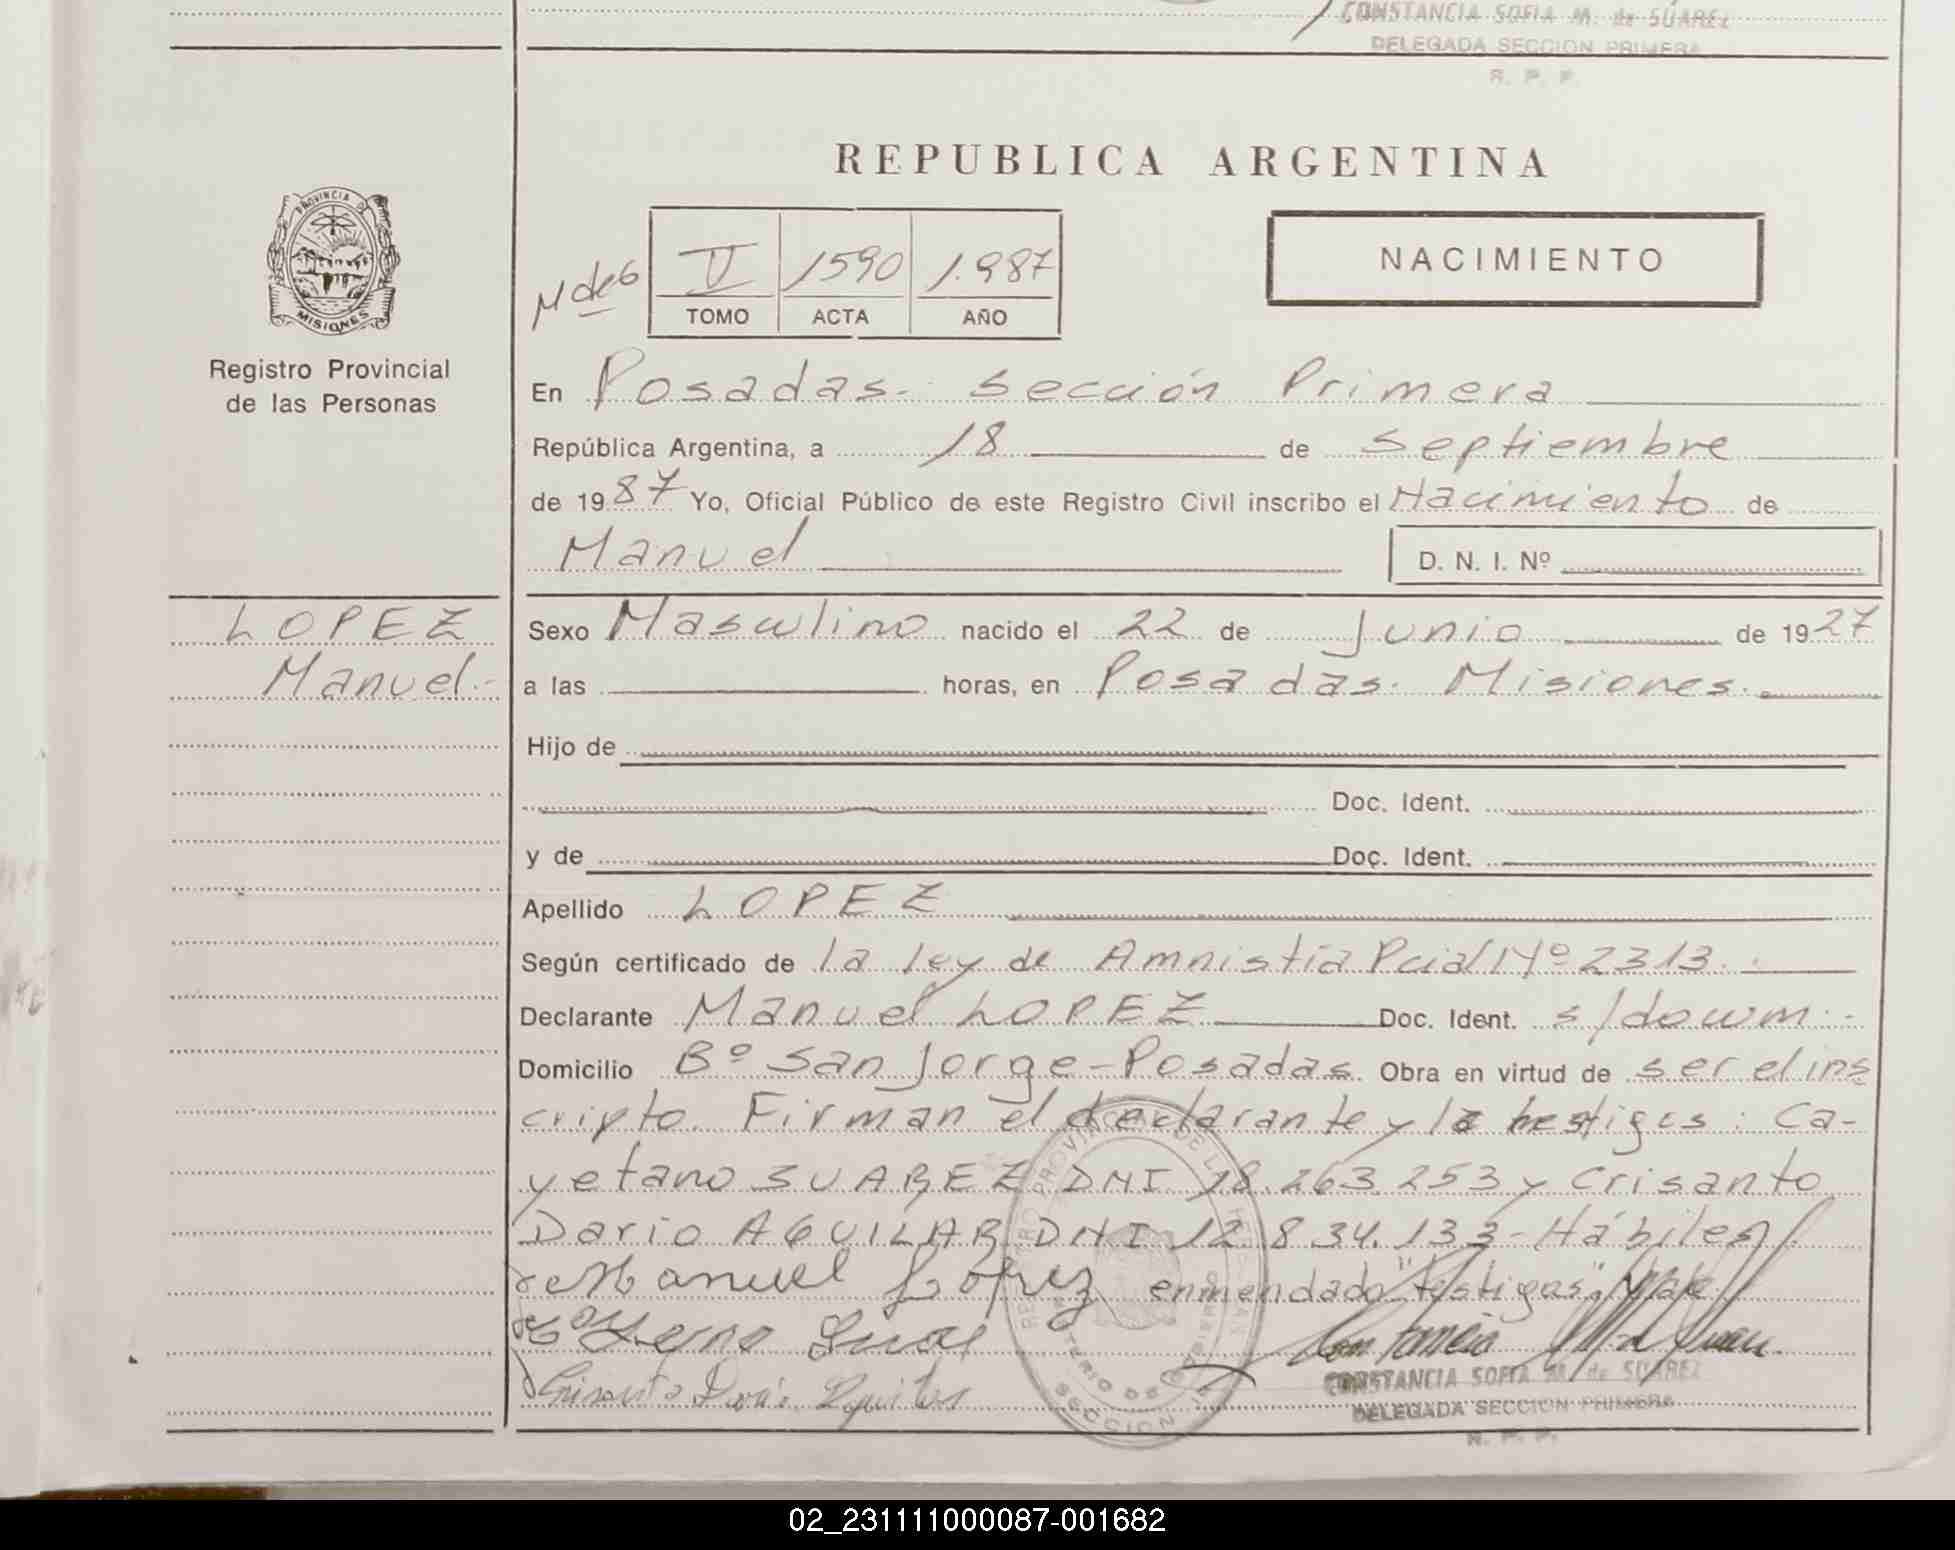 CONSTANCIA SOFIA M. de SUAREZ
DELEGADA SECCION PRIMERA
R. P. P.
REPUBLICA ARGENTINA
PROVINCIA DE
MISIONES
Registro Provincial
de las Personas
II 1590 1.987
TOMO ACTA AÑO
NACIMIENTO
En Posadas - Sección Primera
República Argentina, a 18 de Septiembre
de 1987 Yo, Oficial Público de este Registro Civil inscribo el Nacimiento de
Manuel D. N. I. Nº
LOPEZ
Manuel.-
Sexo Masculino nacido el 22 de Junio de 1927
a las horas, en Posadas. Misiones.
Hijo de
Doc. Ident.
y de Doc. Ident.
Apellido LOPEZ
Según certificado de la ley de Amnistía Pcial Nº 2313.
Declarante Manuel LOPEZ Doc. Ident. s/docum.-
Domicilio Bº San Jorge-Posadas. Obra en virtud de ser el ins
cripto. Firman el declarante y testigos: Ca-
yetano SUAREZ DNI 18.263.253 y Crisanto
Dario AGUILAR DNI 12.834.133-Hábiles
Manuel Lopez enmendado "testigos". Vale
CONSTANCIA SOFIA M. de SUAREZ
DELEGADA SECCION PRIMERA
R. P. P.
02_231111000087-001682